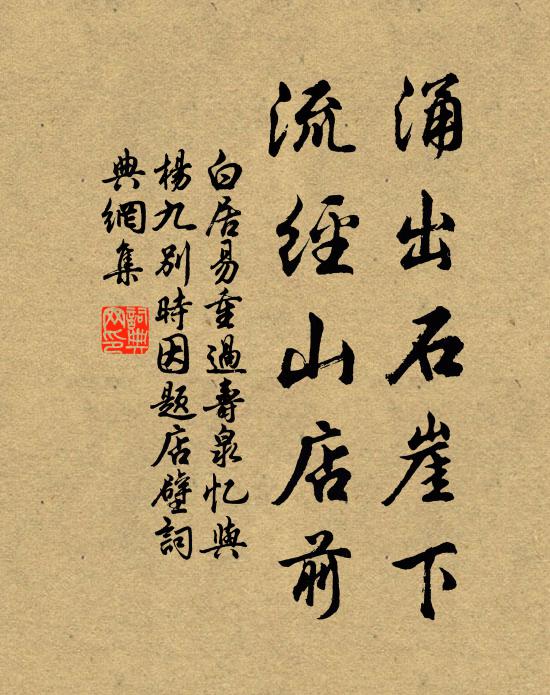 涌出石崖下
流經山店前
白居易重過壽泉忆與
楊九别時因题店壁詞
典網集
詞典網印